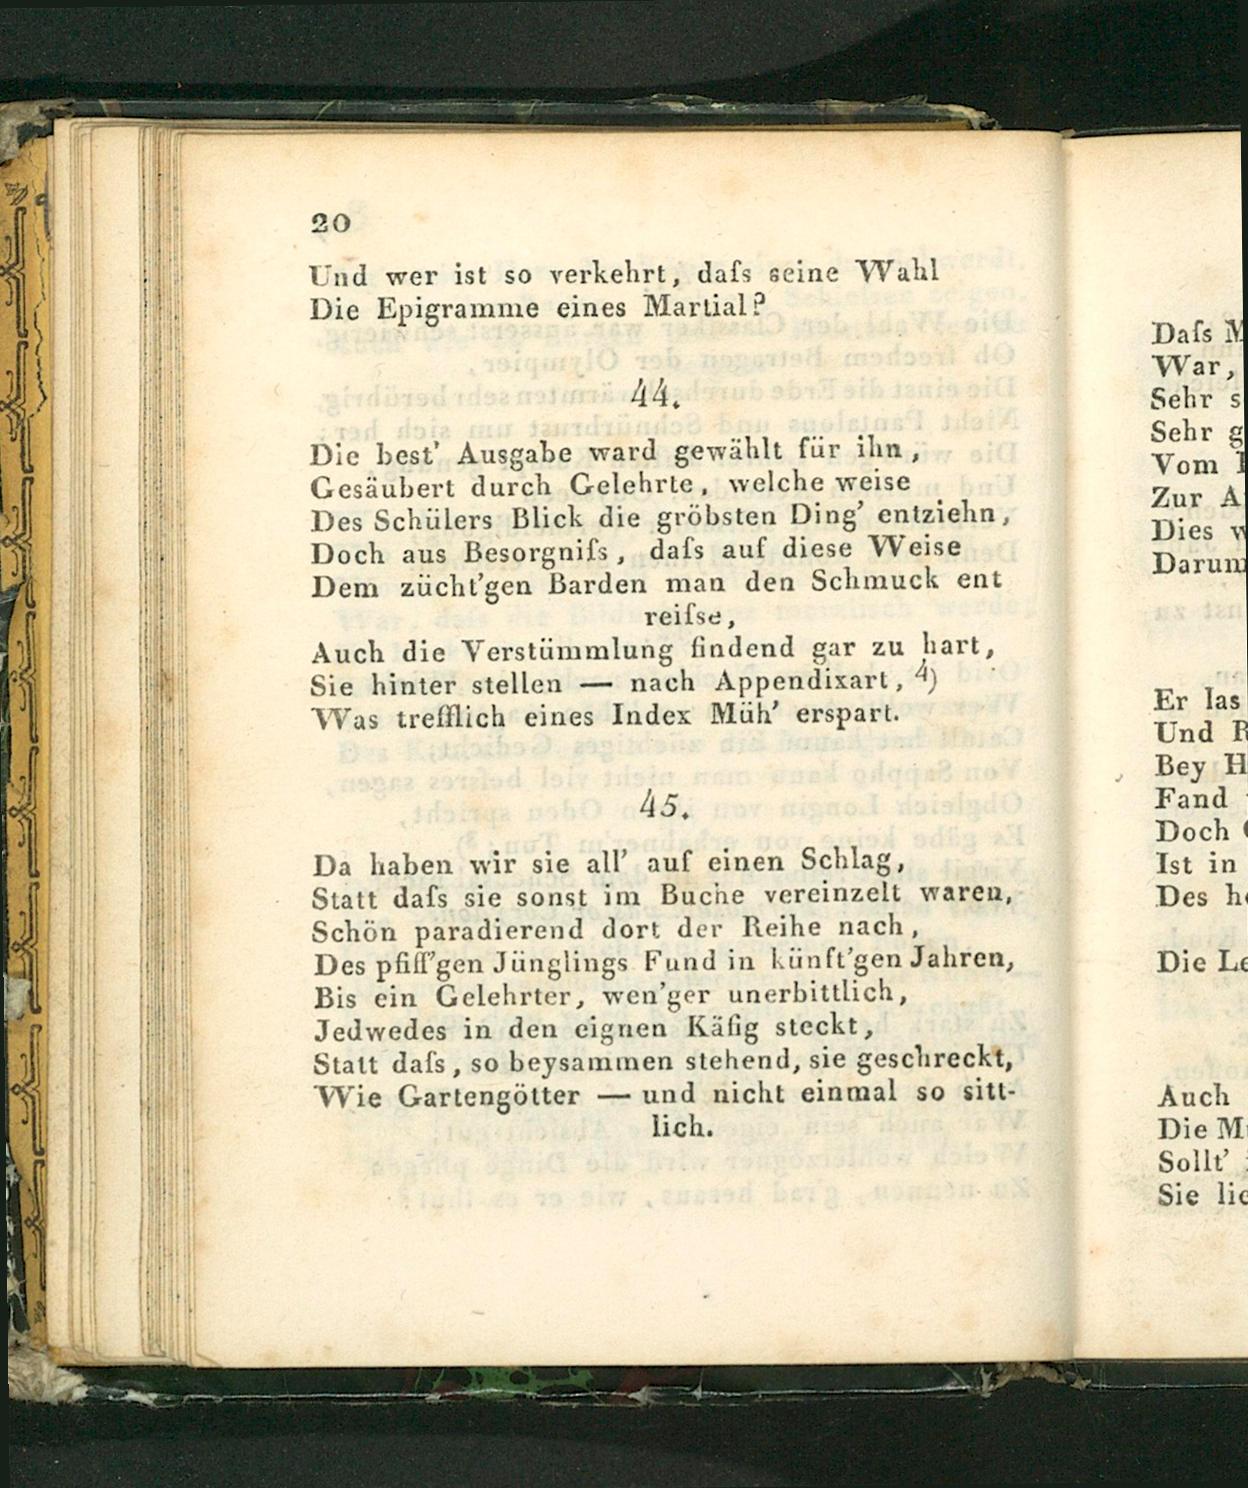 20
Und wer ist so verkehrt, daſs seine Wahl
Die Epigramme eines Martial?
44.
Die best' Ausgabe ward gewählt für ihn,
Gesäubert durch Gelehrte, welche weise
Des Schülers Blick die gröbsten Ding' entziehn,
Doch aus Besorgniſs, daſs auf diese Weise
Dem zücht'gen Barden man den Schmuck ent
reiſse,
Auch die Verstümmlung findend gar zu hart,
Sie hinter stellen — nach Appendixart, 4)
Was trefflich eines Index Müh' erspart.
45.
Da haben wir sie all' auf einen Schlag,
Statt daſs sie sonst im Buche vereinzelt waren,
Schön paradierend dort der Reihe nach,
Des pfiff'gen Jünglings Fund in künft'gen Jahren,
Bis ein Gelehrter, wen'ger unerbittlich,
Jedwedes in den eignen Käfig steckt,
Statt daſs, so beysammen stehend, sie geschreckt,
Wie Gartengötter — und nicht einmal so sitt-
lich.
Daſs
War,
Sehr
Sehr
Vom
Zur
Dies
Darum
Er las
Und
Bey
Fand
Doch
Ist in
Des
Die
Auch
Die
Sollt'
Sie